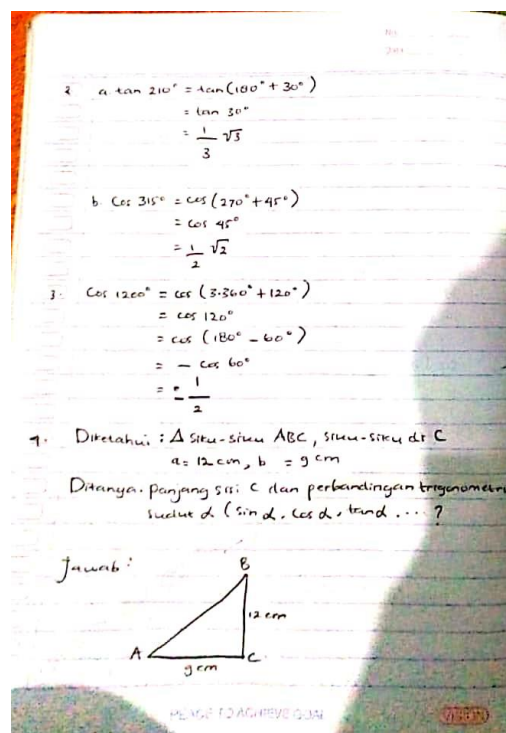 No.
2. a. tan 210° = tan (180° + 30°)
= tan 30°
= 1/3 √3
b. Cos 315° = cos (270° + 45°)
= cos 45°
= 1/2 √2
3. Cos 1200° = cos (3.360° + 120°)
= cos 120°
= cos (180° - 60°)
= - cos 60°
= - 1/2
4. Diketahui : Δ siku-siku ABC, siku-siku di C
a = 12 cm, b = 9 cm
Ditanya. Panjang sisi C dan perbandingan trigonometri
sudut α (sin α, cos α, tan α .... ?
Jawab :
B
12 cm
A
C
9 cm